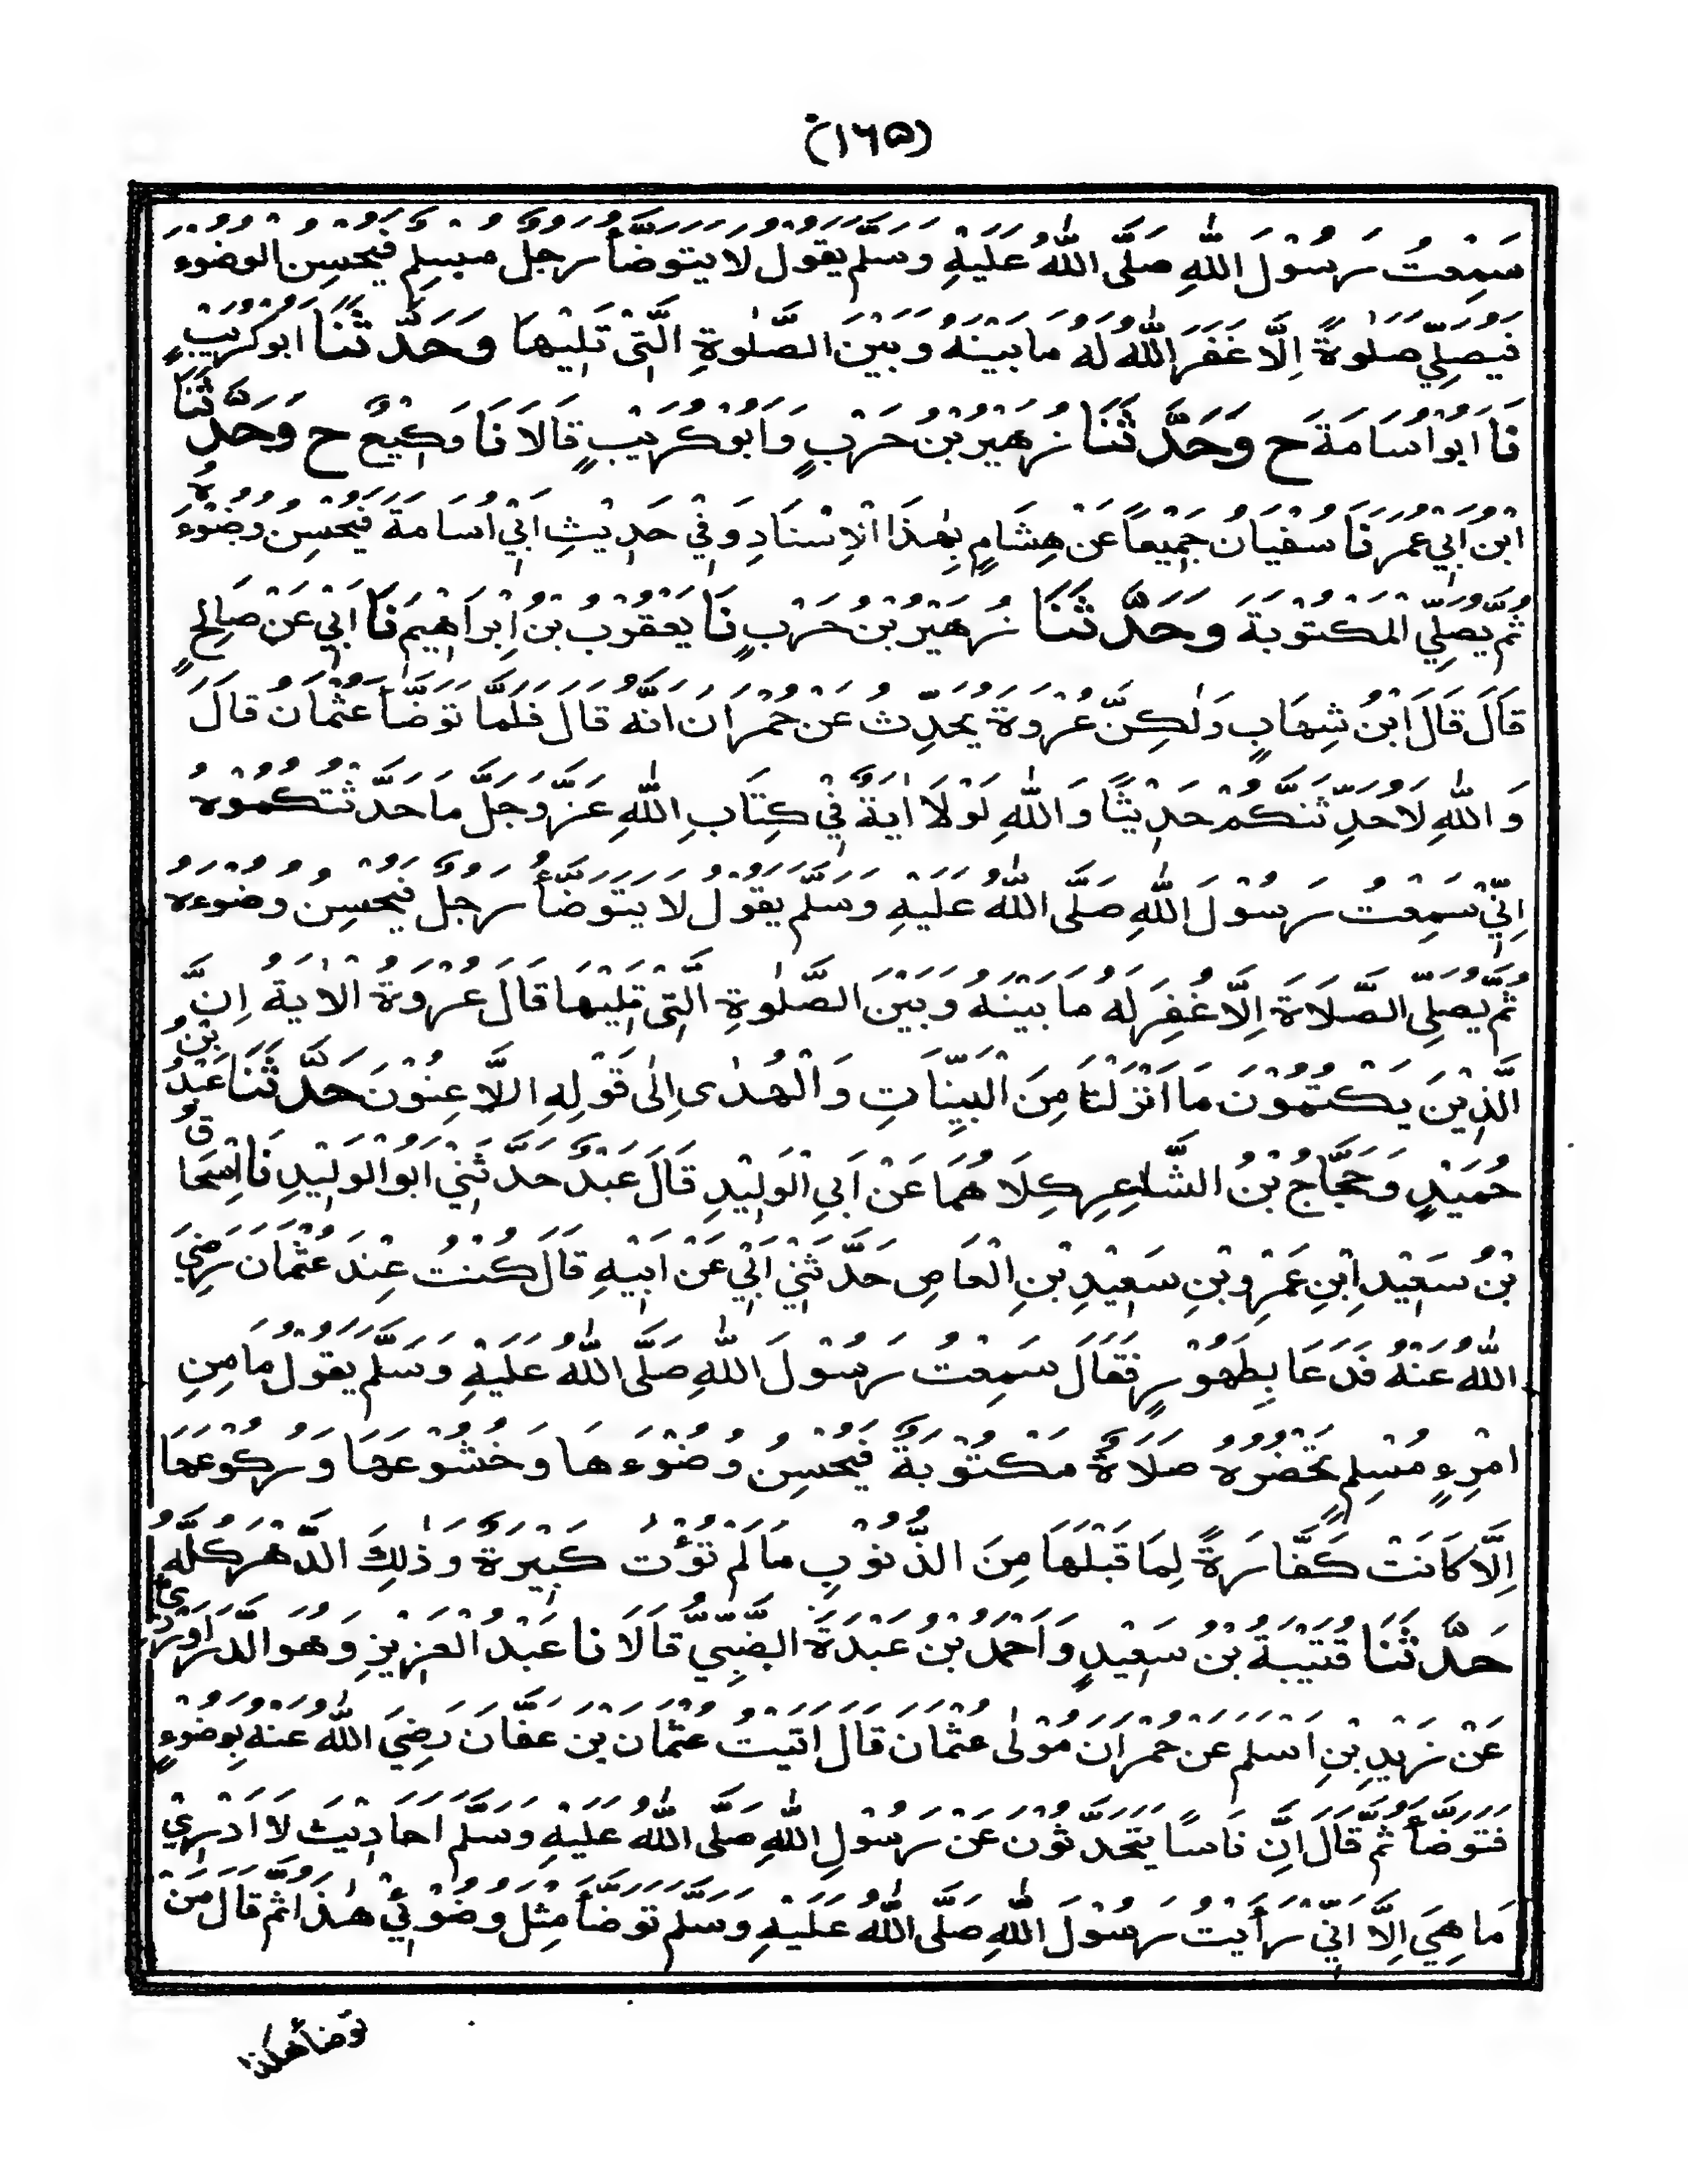 (١٦٥)
سَمِعْتُ رَسُوْلَ اللّٰهِ صَلَّى اللّٰهُ عَلَيْهِ وَسَلَّمَ يَقُوْلُ لَا يَتَوَضَّأُ رَجُلٌ مُسْلِمٌ فَيُحْسِنُ الْوُضُوْءَ
فَيُصَلِّيْ صَلٰوةً اِلَّا غَفَرَ اللّٰهُ لَهُ مَا بَيْنَهُ وَبَيْنَ الصَّلٰوةِ الَّتِيْ تَلِيْهَا وَحَدَّثَنَا اَبُوْ كُرَيْبٍ
نَا اَبُوْ اُسَامَةَ ح وَحَدَّثَنَا زُهَيْرُ بْنُ حَرْبٍ وَاَبُوْ كُرَيْبٍ قَالَا نَا وَكِيْعٌ ح وَحَدَّثَنَا
ابْنُ اَبِيْ عُمَرَ نَا سُفْيَانُ جَمِيْعًا عَنْ هِشَامٍ بِهٰذَا الْاِسْنَادِ وَفِيْ حَدِيْثِ اَبِيْ اُسَامَةَ فَيُحْسِنُ وُضُوْءَهُ
ثُمَّ يُصَلِّي الْمَكْتُوْبَةَ وَحَدَّثَنَا زُهَيْرُ بْنُ حَرْبٍ نَا يَعْقُوْبُ بْنُ اِبْرَاهِيْمَ نَا اَبِيْ عَنْ صَالِحٍ
قَالَ قَالَ ابْنُ شِهَابٍ وَلٰكِنَّ عُرْوَةَ يُحَدِّثُ عَنْ حُمْرَانَ اَنَّهُ قَالَ فَلَمَّا تَوَضَّأَ عُثْمَانُ قَالَ
وَاللّٰهِ لَاُحَدِّثَنَّكُمْ حَدِيْثًا وَاللّٰهِ لَوْلَا اٰيَةٌ فِيْ كِتَابِ اللّٰهِ عَزَّ وَجَلَّ مَا حَدَّثْتُكُمُوْهُ
اِنِّيْ سَمِعْتُ رَسُوْلَ اللّٰهِ صَلَّى اللّٰهُ عَلَيْهِ وَسَلَّمَ يَقُوْلُ لَا يَتَوَضَّأُ رَجُلٌ فَيُحْسِنُ وُضُوْءَهُ
ثُمَّ يُصَلِّي الصَّلَاةَ اِلَّا غُفِرَ لَهُ مَا بَيْنَهُ وَبَيْنَ الصَّلٰوةِ الَّتِيْ تَلِيْهَا قَالَ عُرْوَةُ الْاٰيَةُ اِنَّ
الَّذِيْنَ يَكْتُمُوْنَ مَا اَنْزَلْنَا مِنَ الْبَيِّنَاتِ وَالْهُدٰى اِلٰى قَوْلِهِ اللَّاعِنُوْنَ حَدَّثَنَا عَبْدُ بْنُ
حُمَيْدٍ وَحَجَّاجُ بْنُ الشَّاعِرِ كِلَاهُمَا عَنْ اَبِي الْوَلِيْدِ قَالَ عَبْدٌ حَدَّثَنِيْ اَبُو الْوَلِيْدِ نَا اِسْحَاقُ
بْنُ سَعِيْدِ ابْنِ عَمْرِو بْنِ سَعِيْدِ بْنِ الْعَاصِ حَدَّثَنِيْ اَبِيْ عَنْ اَبِيْهِ قَالَ كُنْتُ عِنْدَ عُثْمَانَ رَضِيَ
اللّٰهُ عَنْهُ فَدَعَا بِطَهُوْرٍ فَقَالَ سَمِعْتُ رَسُوْلَ اللّٰهِ صَلَّى اللّٰهُ عَلَيْهِ وَسَلَّمَ يَقُوْلُ مَا مِنِ
امْرِءٍ مُسْلِمٍ تَحْضُرُهُ صَلَاةٌ مَكْتُوْبَةٌ فَيُحْسِنُ وُضُوْءَهَا وَخُشُوْعَهَا وَرُكُوْعَهَا
اِلَّا كَانَتْ كَفَّارَةً لِمَا قَبْلَهَا مِنَ الذُّنُوْبِ مَا لَمْ تُؤْتَ كَبِيْرَةٌ وَذٰلِكَ الدَّهْرَ كُلَّهُ
حَدَّثَنَا قُتَيْبَةُ بْنُ سَعِيْدٍ وَاَحْمَدُ بْنُ عَبْدَةَ الضَّبِّيُّ قَالَا نَا عَبْدُ الْعَزِيْزِ وَهُوَ الدَّرَاوَرْدِيُّ
عَنْ زَيْدِ بْنِ اَسْلَمَ عَنْ حُمْرَانَ مَوْلٰى عُثْمَانَ قَالَ اَتَيْتُ عُثْمَانَ بْنَ عَفَّانَ رَضِيَ اللّٰهُ عَنْهُ بِوَضُوْءٍ
فَتَوَضَّأَ ثُمَّ قَالَ اِنَّ نَاسًا يَتَحَدَّثُوْنَ عَنْ رَسُوْلِ اللّٰهِ صَلَّى اللّٰهُ عَلَيْهِ وَسَلَّمَ اَحَادِيْثَ لَا اَدْرِيْ
مَا هِيَ اِلَّا اَنِّيْ رَأَيْتُ رَسُوْلَ اللّٰهِ صَلَّى اللّٰهُ عَلَيْهِ وَسَلَّمَ تَوَضَّأَ مِثْلَ وُضُوْئِيْ هٰذَا ثُمَّ قَالَ مَنْ
توضأ هكذا